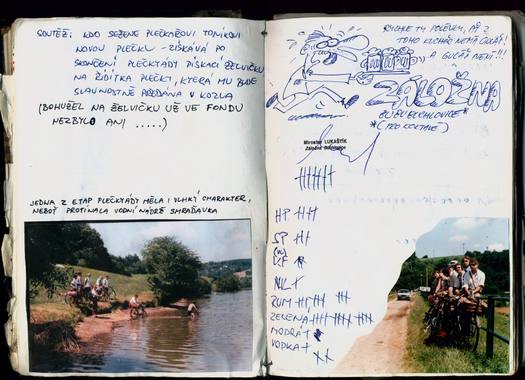 SOUTĚŽ: KDO SEŽENE PLEČKAŘOVI TONÍKOVI
NOVOU PLEČKU - ZÍSKÁVÁ PO
SKONČENÍ PLEČKYÁDY PÍSKACÍ ŽELVIČKU
NA ŘIDÍTKA PLEČKY, KTERÁ MU BUDE
SLAVNOSTNĚ PŘEDÁNA V KOZLU
(BOHUŽEL NA ŽELVIČKU UŽ VE FONDU
NEZBYLO ANI .....)
JEDNA Z ETAP PLEČKYÁDY MĚLA I VLHKÝ CHARAKTER,
NEBOŤ PROTÍNALA VODNÍ NÁDRŽ SMRAĎAVKA
RYCHLE TY POLÉVKY, AŤ Z
TOHO KUCHAŘ NEMÁ GULÁŠ!
A GULÁŠ NENÍ!!!
ZÁLOŽNA
BUBUBUCHLOVICE*
*(PRO KOKTAVÉ)
Miroslav LUKAŠTÍK
Záložna Buchlovice
HP
SP
VF
NL
RUM
ZELENÁ
MODRÁ
VODKA